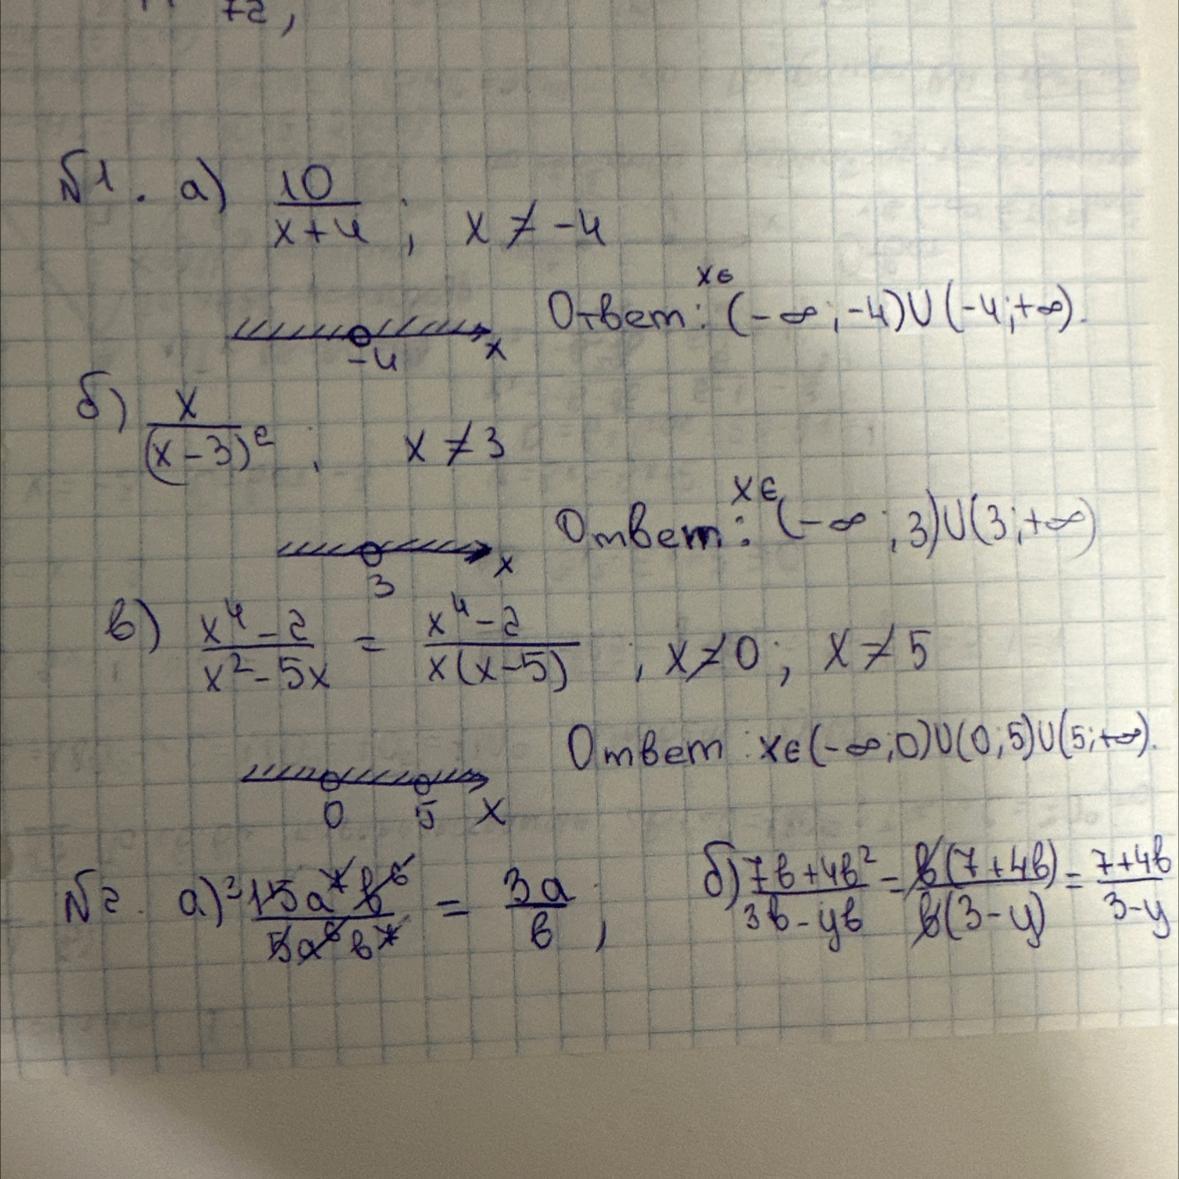 72,
№1. а) 10/(x+4); x ≠ -4
Ответ: x∈ (-∞; -4)∪(-4; +∞).
-4 x
б) x/(x-3)²; x ≠ 3
Ответ: x∈ (-∞; 3)∪(3; +∞)
3 x
в) (x⁴-2)/(x²-5x) = (x⁴-2)/(x(x-5)); x≠0; x ≠ 5
Ответ: x∈(-∞; 0)∪(0; 5)∪(5; +∞).
0 5 x
№2. а) ³15a⁷b⁶/(5a⁶b⁷) = 3a/b; б) (7b+4b²)/(3b-yb) = b(7+4b)/(b(3-y)) = (7+4b)/(3-y)